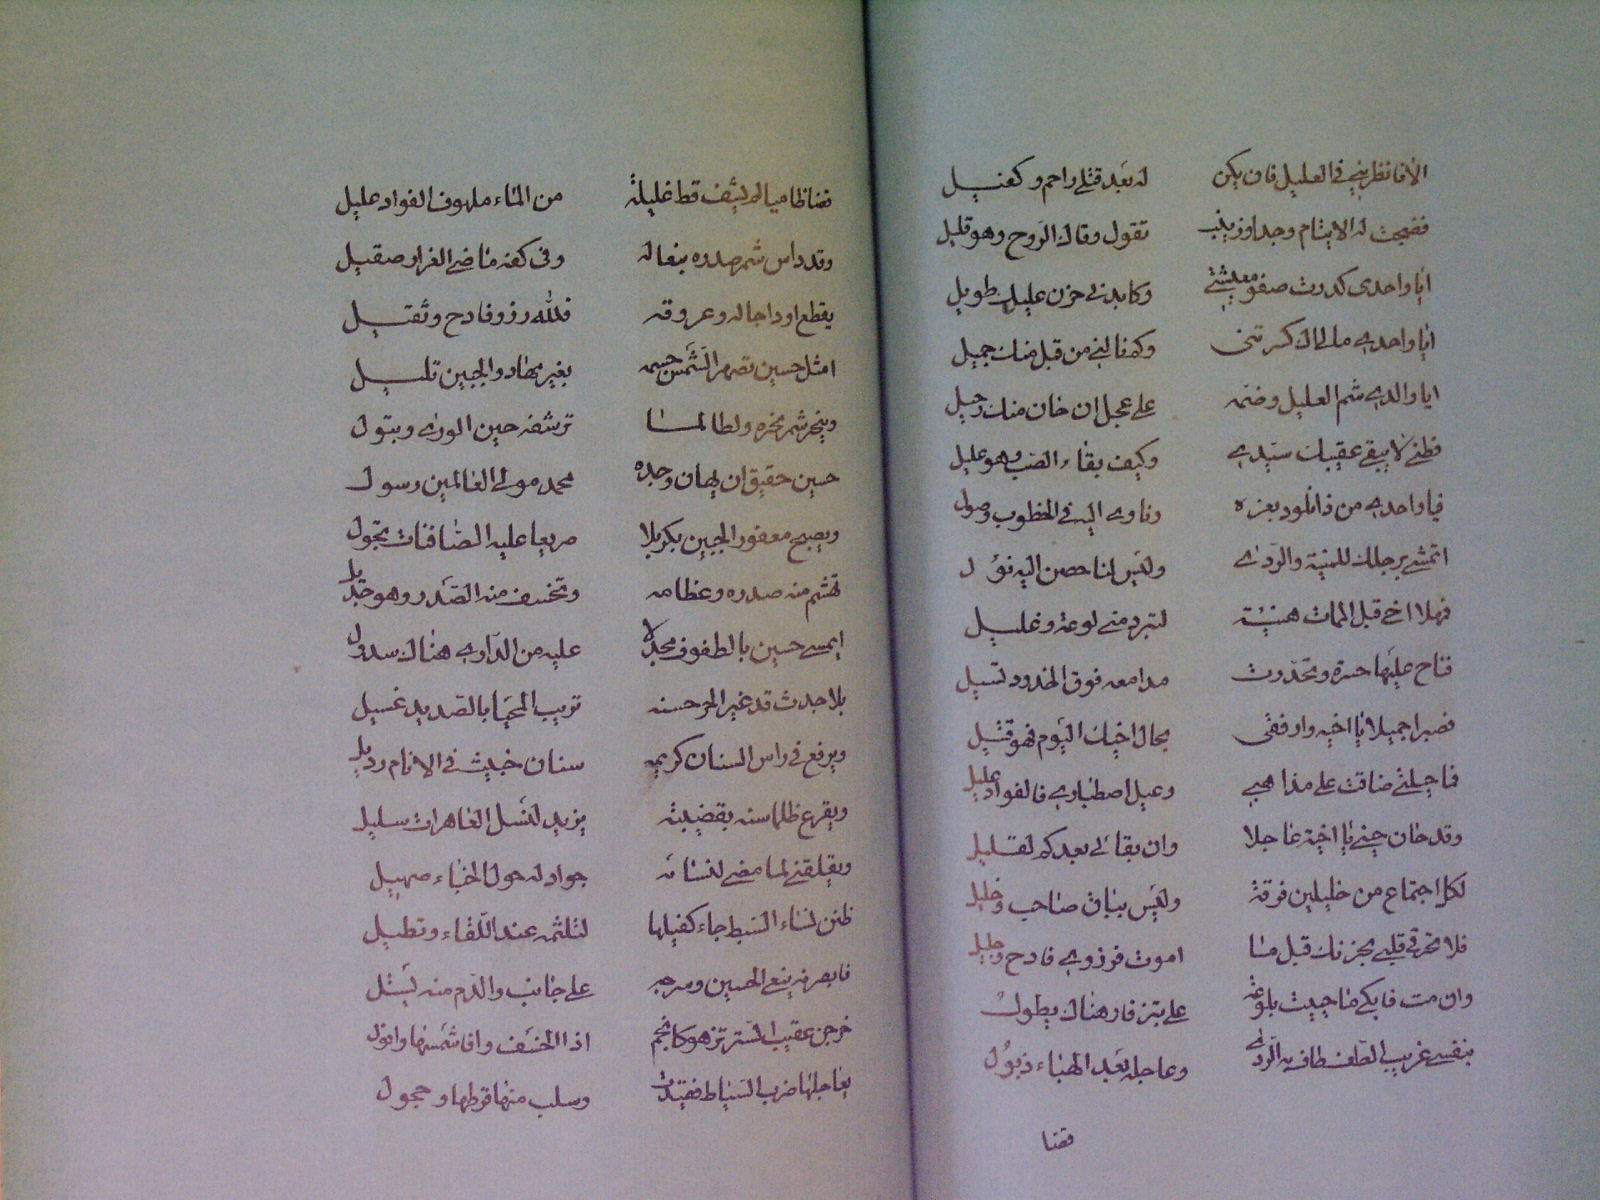 الا فانظريني في العليل فان يكن له بعد قتلي راحم وكفيل
ففجت له الايتام وجدا وزينب تقول وقاك الروح وهو قليل
ايا واحدي كدرت صفو معيشتي وكابدني حزن عليك طويل
ايا واحدي مالي اراك كم نالني من قبل منك جميل
ايا والدي شم العليل وضمه على عجل ان خان منك رحيل
فظني لا يبقى عقيبك سيدي وكيف بقاء الصب وهو عليل
فيا واحدي من ذا نلود بعزه وناوي اليه في الخطوب وصول
اتمشي برجلك للمنية والردى وليس لنا حصن اليه نؤل
فهلا اخي قبل الممات هنيئة لتبرد مني لوعة وغليل
فناح عليها حسرة وتحدرت مدامعه فوق الخدود تسيل
فصبرا جميلا يا اخيه وارفقي بحال اخيك اليوم فهو قتيل
فما حيلتي ضاقت علي مذاهبي وعيل اصطباري فالفواد عليل
وقد حان حيني يا اخية عاجلا وان بقائي بعدكم لقليل
لكل اجتماع من خليلين فرقة وليس بباق صاحب وخليل
فلا تحرقي قلبي بحزنك قبل ما اموت فرزوي فادح وجليل
وان مت فابكي ما حييت بلوعة على بتر فار هناك يطول
بنفسي غريب الطف طاف به الردى وعاجله بعد الهناء ذبول
قضا
قضا ظاميا لم يشف قط غليلة من الماء ملهوف الفواد عليل
وقد داس شمر صدره بنعاله وفي كفه ماضي الغرار صقيل
يقطع اوداجا له وعروقه فلله رزو فادح وثقيل
امثل حسين تصهر الشمس جسمه بغير مهاد والجبين تليل
وينحر شمر نحره ولطالما ترشفه حين الورى وبتول
حسين حقيق ان يهان وجده محمد مولى العالمين رسول
ويصبح معفور الجبين بكربلا صريعا عليه الصافنات تجول
تهشم منه صدره وعظامه وتخسف منه الصدر وهو جديل
ايمسي حسين بالطفوف مجدلا عليه من الذاري هناك سدول
بلا جدث قد غير الحر حسنه تريب المحيا بالصديد غسيل
ويرفع في راس السنان كريمه سنان خبيث في الانام رذيل
ويقرع ظلما سنه بقضيبه يزيد لنسل العاهرات سليل
ويقلقني لما مضى لنسائه جواد له حول الخباء صهيل
ظنن نساء السبط جاء كفيلها لتلثمه عند اللقاء وتطيل
فابصرنه ينعي الحسين وسرجه على جانب والدم منه يسيل
خرجن عقيب الستر تزهو كانجم اذا الخسف وافا شمسها وافول
يعاجلها ضرب السياط فيقيدت وسلب منها قرطها وحجول